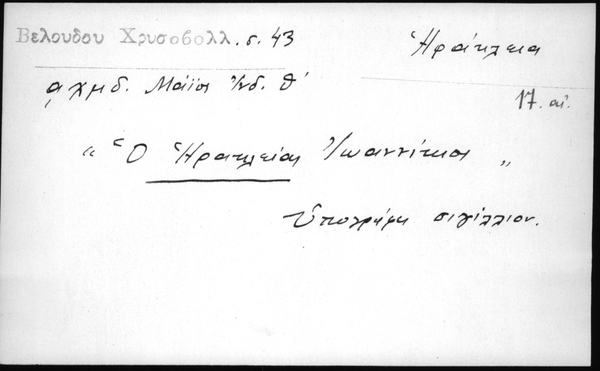 Βελουδου Χρυσοβολλ. σ. 43
Ἡράκλεια
͵αχμδ. Μάϊος Ἰνδ. θ′
17. αἰ.
„ Ὁ Ἡρακλείας Ἰωαννίκιος „
Ὑπογράφει σιγίλλιον.